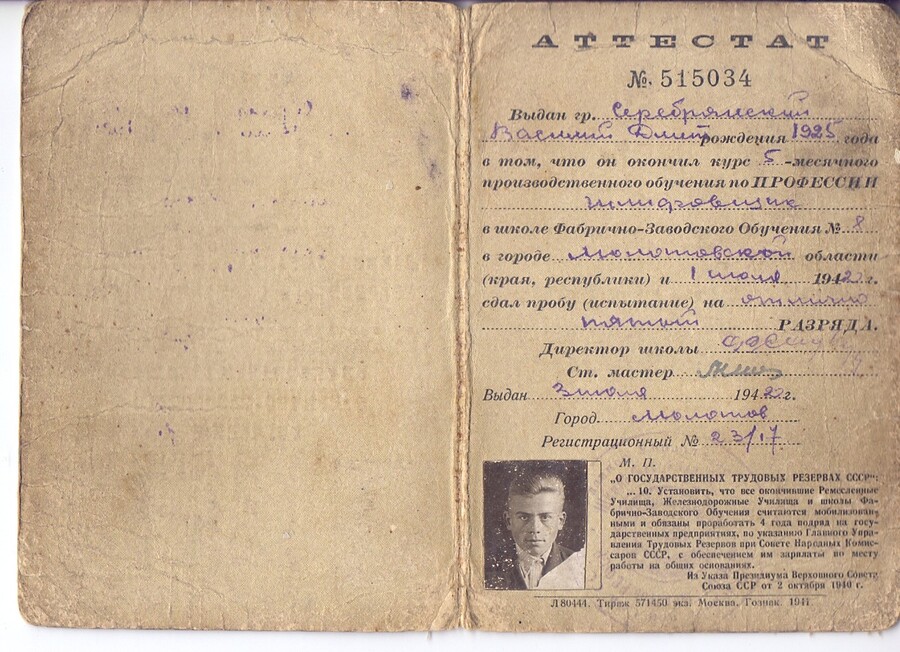 АТТЕСТАТ
№ 515034
Выдан гр. Серебрянский
Василий Дмит рождения 1925 года
в том, что он окончил курс 5-месячного
производственного обучения по ПРОФЕССИИ
шлифовщик
в школе Фабрично-Заводского Обучения № 8
в городе Молотовской области
(края, республики) и 1 июля 1942 г.
сдал пробу (испытание) на отлично
пятый РАЗРЯДА.
Директор школы
Ст. мастер
Выдан 3 июля 1942 г.
Город Молотов
Регистрационный № 23/17
М. П.
„О ГОСУДАРСТВЕННЫХ ТРУДОВЫХ РЕЗЕРВАХ СССР“:
... 10. Установить, что все окончившие Ремесленные
Училища, Железнодорожные Училища и школы Фа-
брично-Заводского Обучения считаются мобилизован-
ными и обязаны проработать 4 года подряд на госу-
дарственных предприятиях, по указанию Главного Упра-
вления Трудовых Резервов при Совете Народных Комис-
саров СССР, с обеспечением им зарплаты по месту
работы на общих основаниях.
Из Указа Президиума Верховного Совета
Союза ССР от 2 октября 1940 г.
Л80444. Тираж 571450 экз. Москва, Гознак. 1941